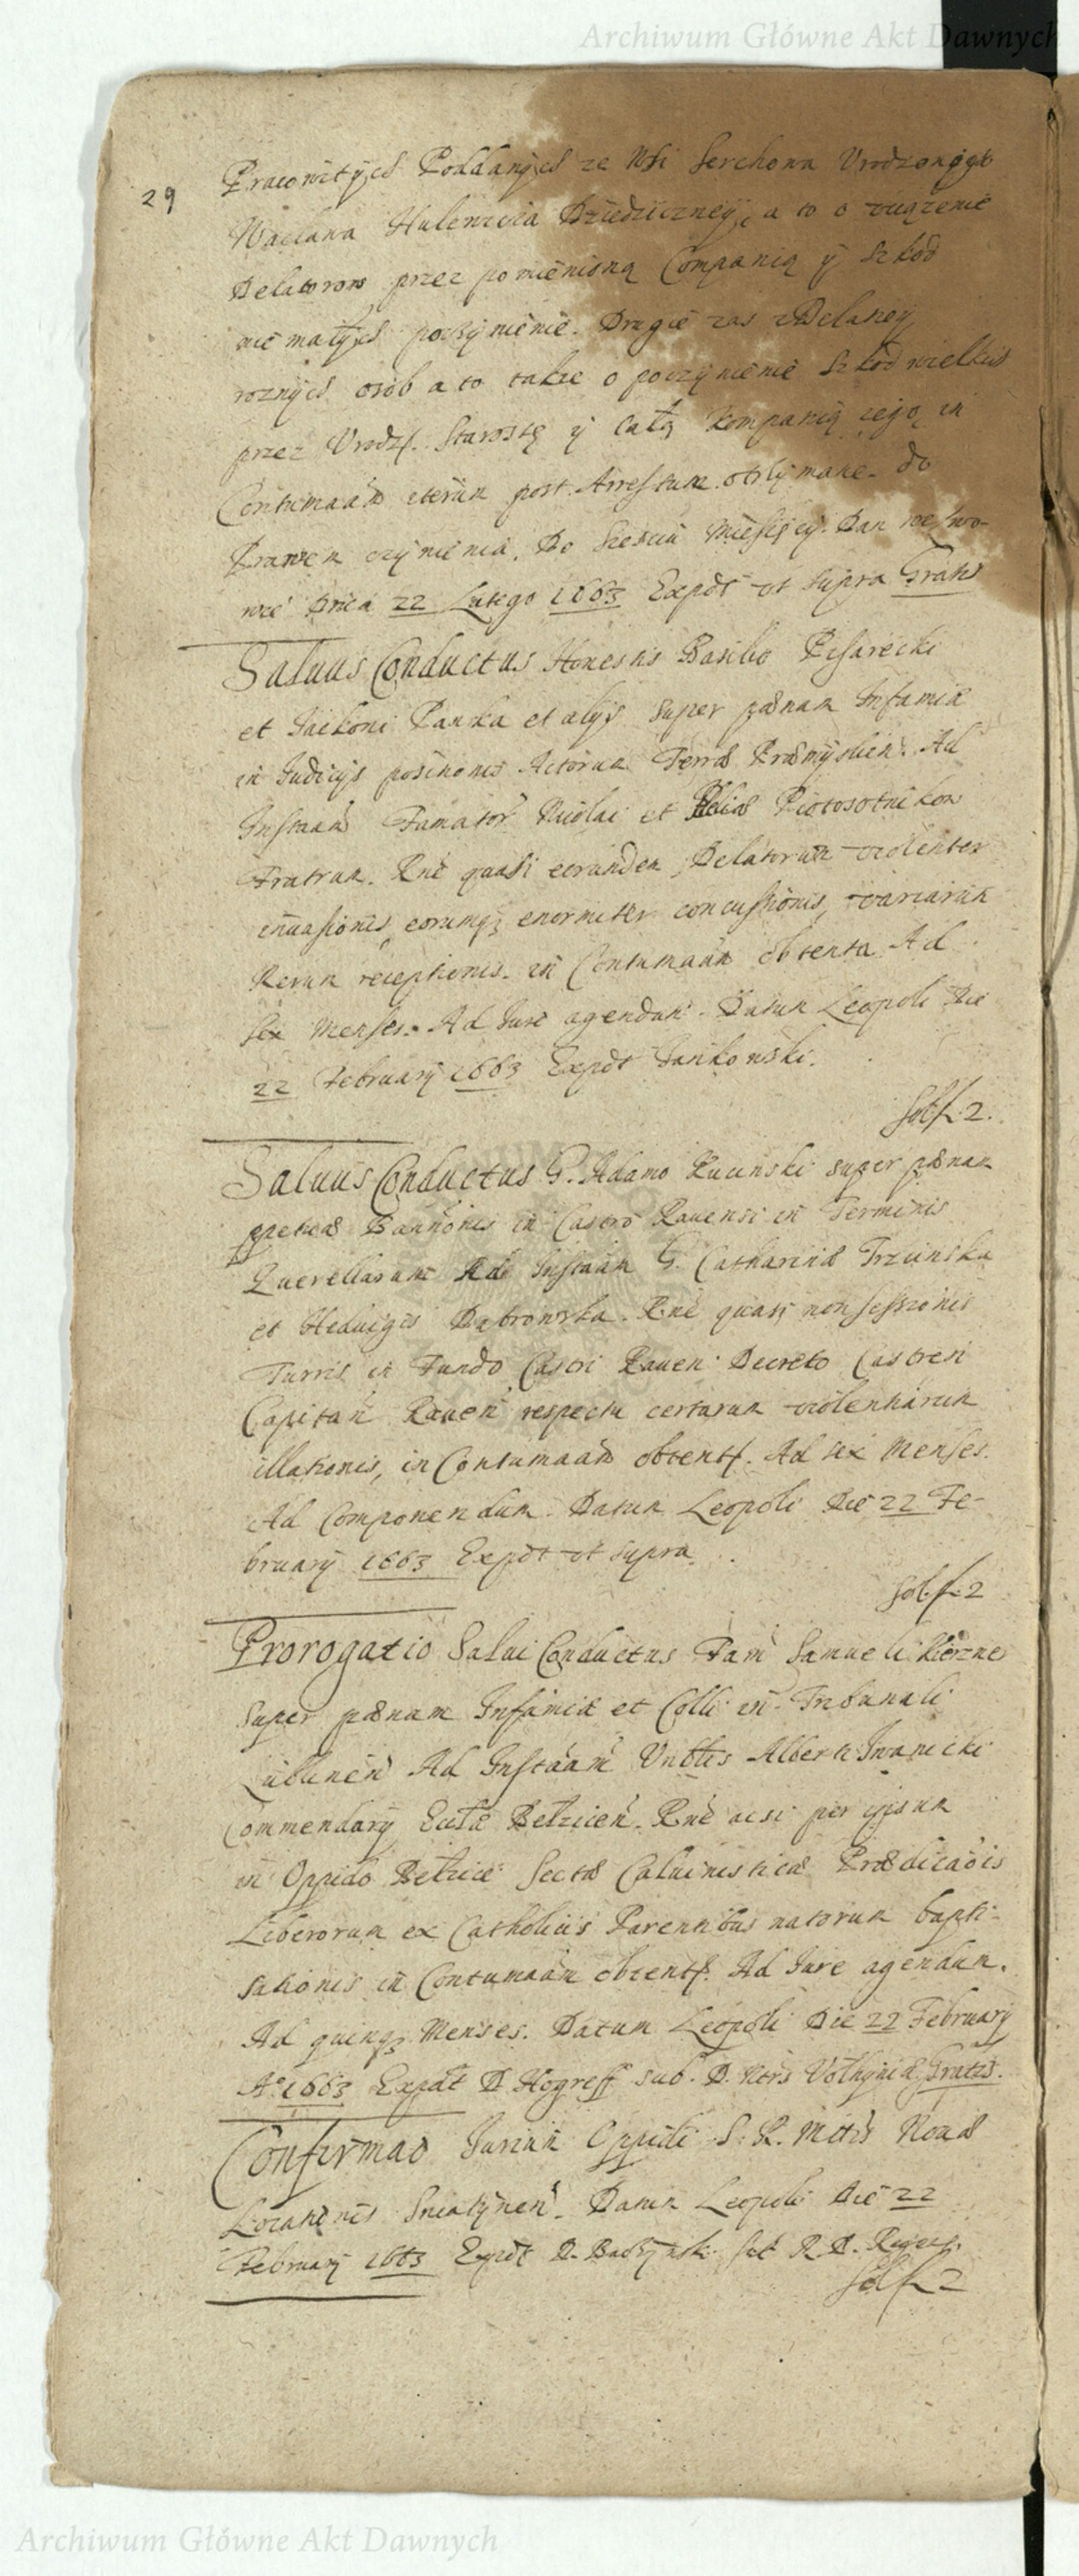 Archiwum Główne Akt Dawnych
29
Pracowitych Poddanych ze Wsi Serchowa Urodzonego
Wacława Hulewicza Dziedziczney, a to o
Delatorow przez pomienioną Companią y szkod
nie małych poczynienie. Drugie zas
roznych osob a to takze o poczynienie szkod wielkich
przez Urodz. Starostę y całą Kompanią iego in
Contumaciam iterum post Arrestum otrzymane. do
Prawem czynienia. Do sześciu Miesięcy. Dan we Lwo-
wie Dnia 22 Lutego 1663 Expdt ut supra Gratis
Saluus Conductus Honestis Basilio Pisarecki
et Jackoni Panka et alys super pænam Infamiæ
in Judicys positionis Actorum Terræ Præmyslien. Ad
Instaam Famator Nicolai et Heliæ Piotosotnikow
Fratrum. Rne quasi eorundem Delatorum violenter
inuasionis, eorumq; enormiter concussionis, variarum
Rerum receptionis in Contumaam obtenta Ad
sex Menses. Ad Jure agendum. Datum Leopoli Die
22 February 1663 Expdt Jankowski.
Sol f. 2.
Saluus Conductus G. Adamo Rucinski super pænam
ppetuæ Bannonis in Castro Rauensi in Terminis
Querellarum Ad Instaam G. Catharinæ Trzcinska
et Heduigis Dąbrowska. Rne quasi non sessionis
Turris in Fundo Castri Rauen Decreto Castren
Capitan Rauen respectu certarum violentiarum
illationis, in Contumaam obtent. Ad sex Menses.
Ad Componendum. Datum Leopoli Die 22 Fe-
bruary 1663 Expdt ut supra
Sol. f. 2
Prorogatio Salui Conductus Fam Samueli
super pænam Infamiæ et Colli in Tribunali
Lublinen Ad Instaam Vnblis Alberti Iwanicki
Commendary Eccla Bełzicen. Rne acsi per ipsum
in Oppido Bełzice Sectæ Caluinisticæ Prædicaois
Liberorum ex Catholicis Parentibus natorum bapti-
sationis in Contumaam obtent. Ad Jure agendum.
Ad quinq; Menses. Datum Leopoli Die 22 February
Ao 1663 Expdt D. Hogreff sub. D. Ntrs Volhyniæ Gratis.
Confirmao Jurium Oppidi S. R. Mttis Nouæ
Locationis Sniatynen. Datum Leopoli Die 22
February 1663 Expdt D. Baczynski
Sol f. 2
Archiwum Główne Akt Dawnych